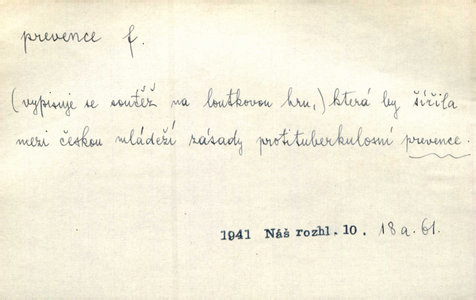 prevence f.
(vypisuje se soutěž na loutkovou hru,) která by šířila
mezi českou mládeží zásady protituberkulosní prevence.
1941 Náš rozhl. 10. 18 a. 61.